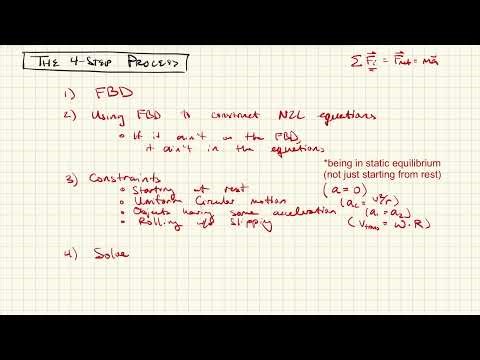 THE 4-STEP PROCESS
∑ F⃗ᵢ = F⃗net = ma⃗
1) FBD
2) Using FBD to construct N2L equations
• If it ain't on the FBD,
it ain't in the equations
*being in static equilibrium
(not just starting from rest)
3) Constraints
• Starting at rest (a = 0)
• Uniform Circular motion (ac = v²/r)
• Objects having same acceleration (a₁ = a₂)
• Rolling w/o slipping (Vtrans = ω · R)
4) Solve